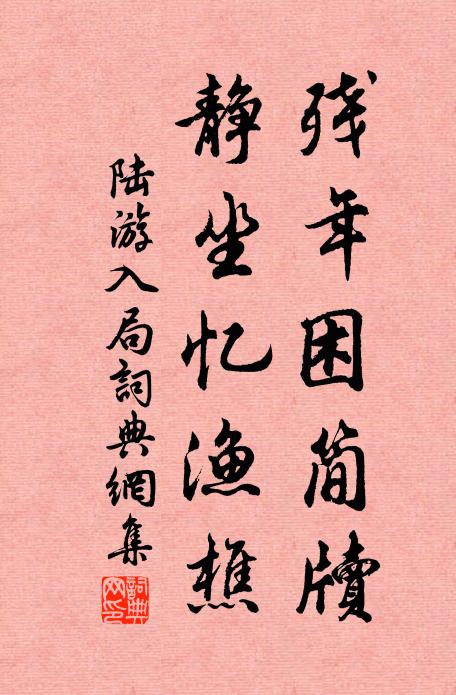 残年困简牍
静坐忆渔樵
陆游入局詞典網集
詞典网印